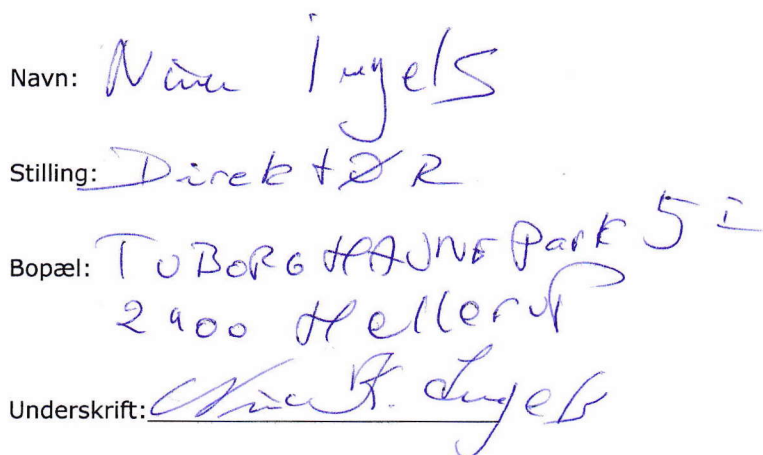 Navn: Nina Ingels
Stilling: DirektØR
Bopæl: TUBORG HAVNEPark 5 I
2900 Hellerup
Underskrift: Nina K. Ingels